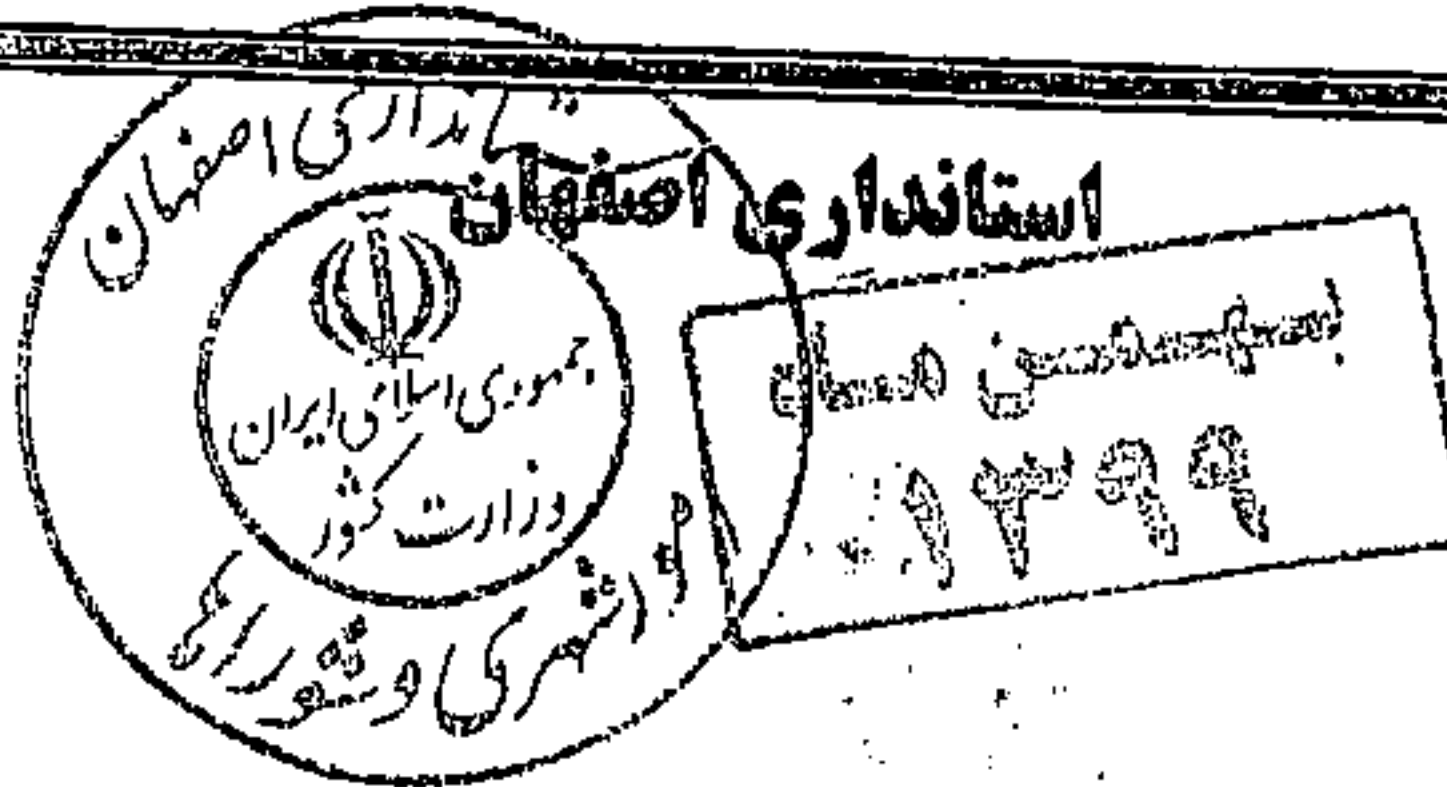 استانداری اصفهان
استانداری اصفهان
جمهوری اسلامی ایران
وزارت کشور
امور شهری و شوراها
بهمن ماه
۱۳۹۹